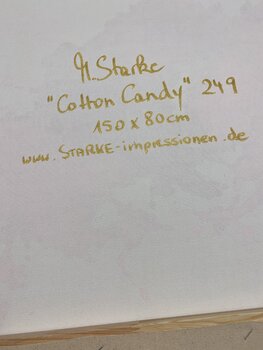 M. Starke
"Cotton Candy" 249
150 x 80cm
www.STARKE-impressionen.de